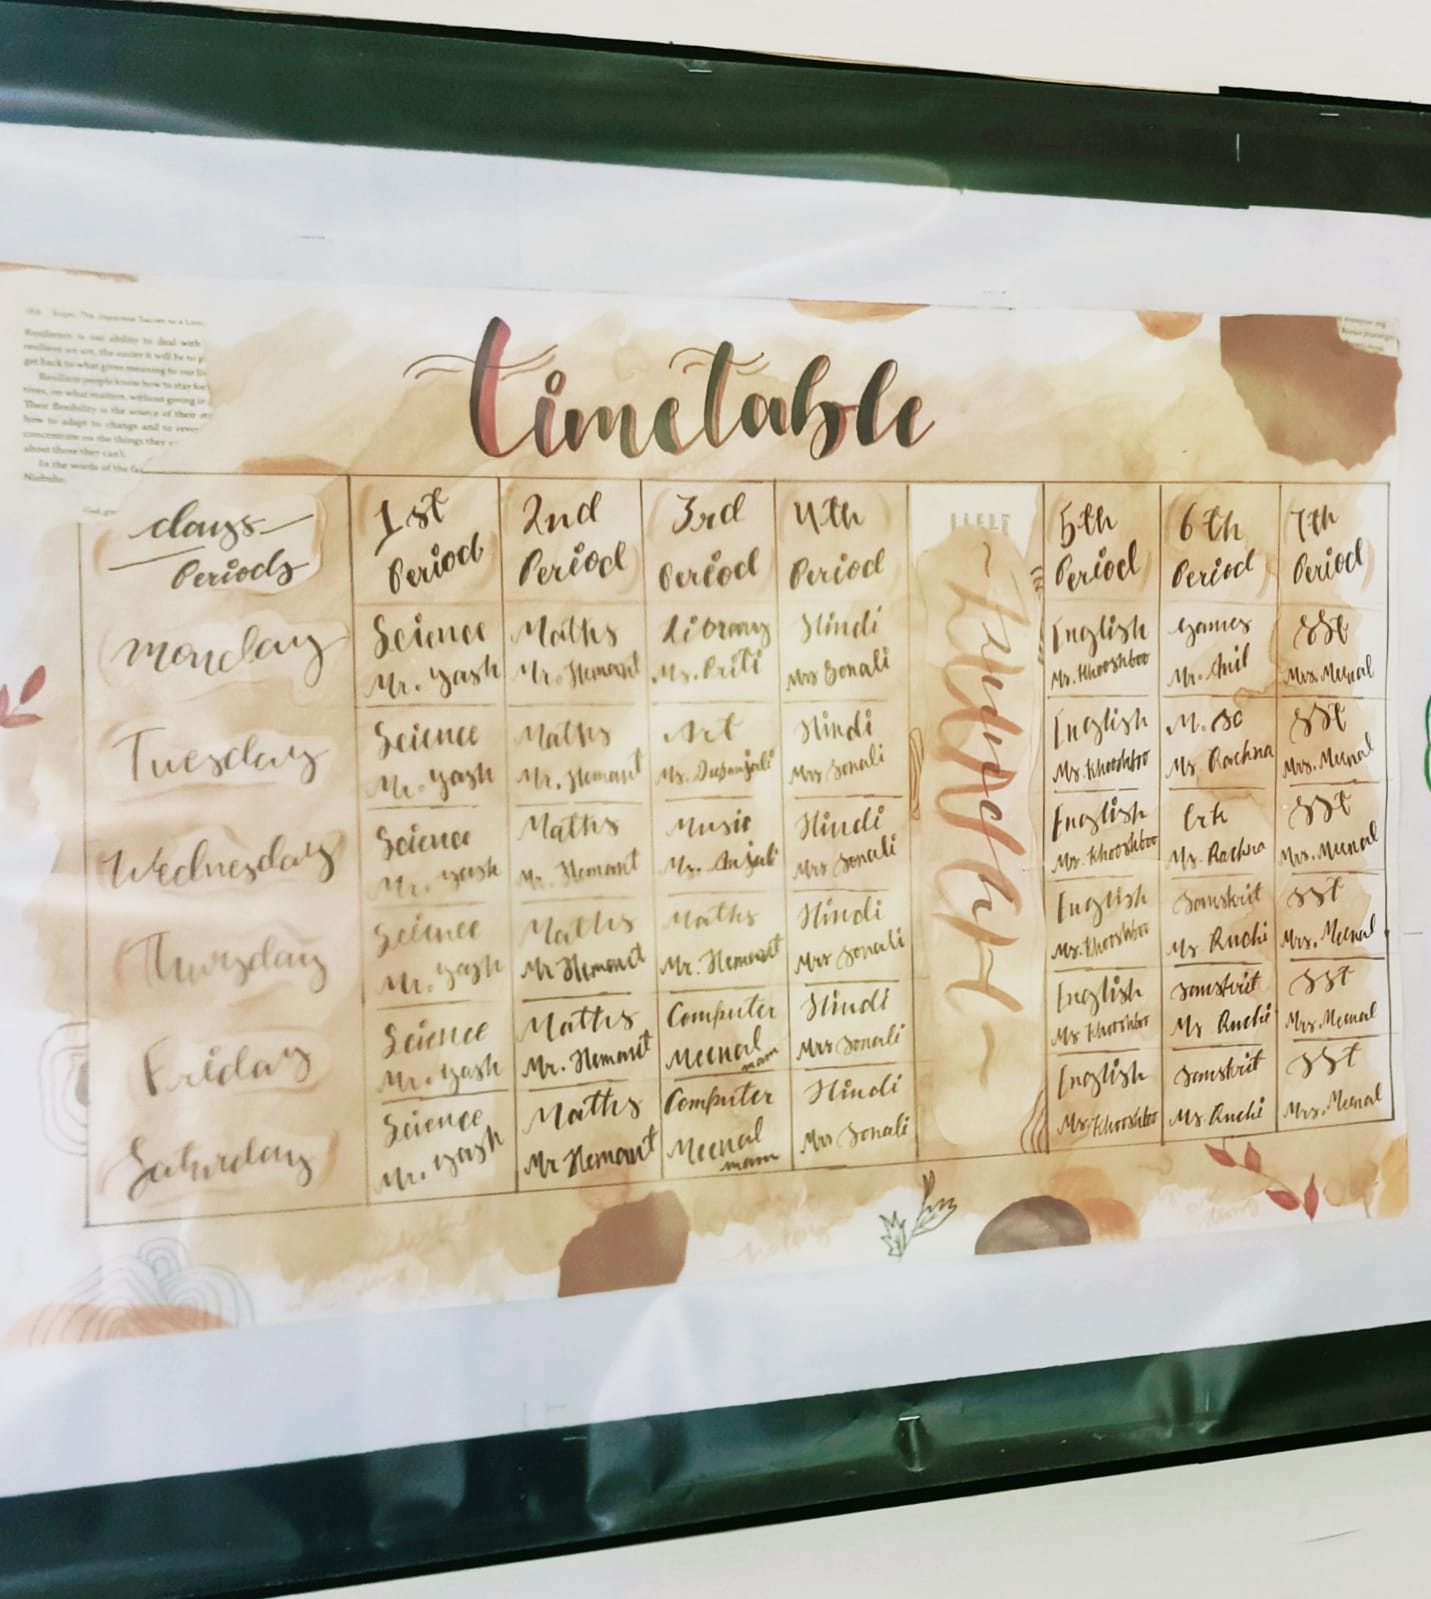 Resilience is our ability to deal with
resilient we are, the easier it will be to
get back to what gives meaning to our
Resilient people know how to stay
on what matters, without giving in
Their flexibility is the source of their
how to adapt to change and to
concentrate on the things they
about those they can't.
In the words of the
timetable
days
Periods
1st Period
2nd Period
3rd Period
4th Period
5th Period
6th Period
7th Period
Monday
Science
Mr. Yash
Maths
Mr. Hemant
Library
Ms. Priti
Hindi
Mrs Sonali
English
Ms. Khooshboo
Games
Mr. Anil
SSt
Mrs. Meenal
Tuesday
Science
Mr. Yash
Maths
Mr. Hemant
Art
Ms. Deepanjali
Hindi
Mrs Sonali
English
Ms. Khooshboo
M. Sc
Ms Rachna
SSt
Mrs. Meenal
Wednesday
Science
Mr. Yash
Maths
Mr. Hemant
Music
Ms. Anjali
Hindi
Mrs Sonali
English
Ms. Khooshboo
Ms. Rachna
SSt
Mrs. Meenal
Thursday
Science
Mr. Yash
Maths
Mr Hemant
Maths
Mr. Hemant
Hindi
Mrs Sonali
English
Ms. Khooshboo
Sanskrit
Ms Ruchi
SSt
Mrs. Meenal
Friday
Science
Mr. Yash
Maths
Mr. Hemant
Computer
Meenal
mam
Hindi
Mrs Sonali
English
Ms Khooshboo
Sanskrit
Ms Ruchi
SSt
Mrs. Meenal
Saturday
Science
Mr. Yash
Maths
Mr Hemant
Computer
Meenal
mam
Hindi
Mrs Sonali
English
Ms. Khooshboo
Sanskrit
Ms. Ruchi
SSt
Mrs. Meenal